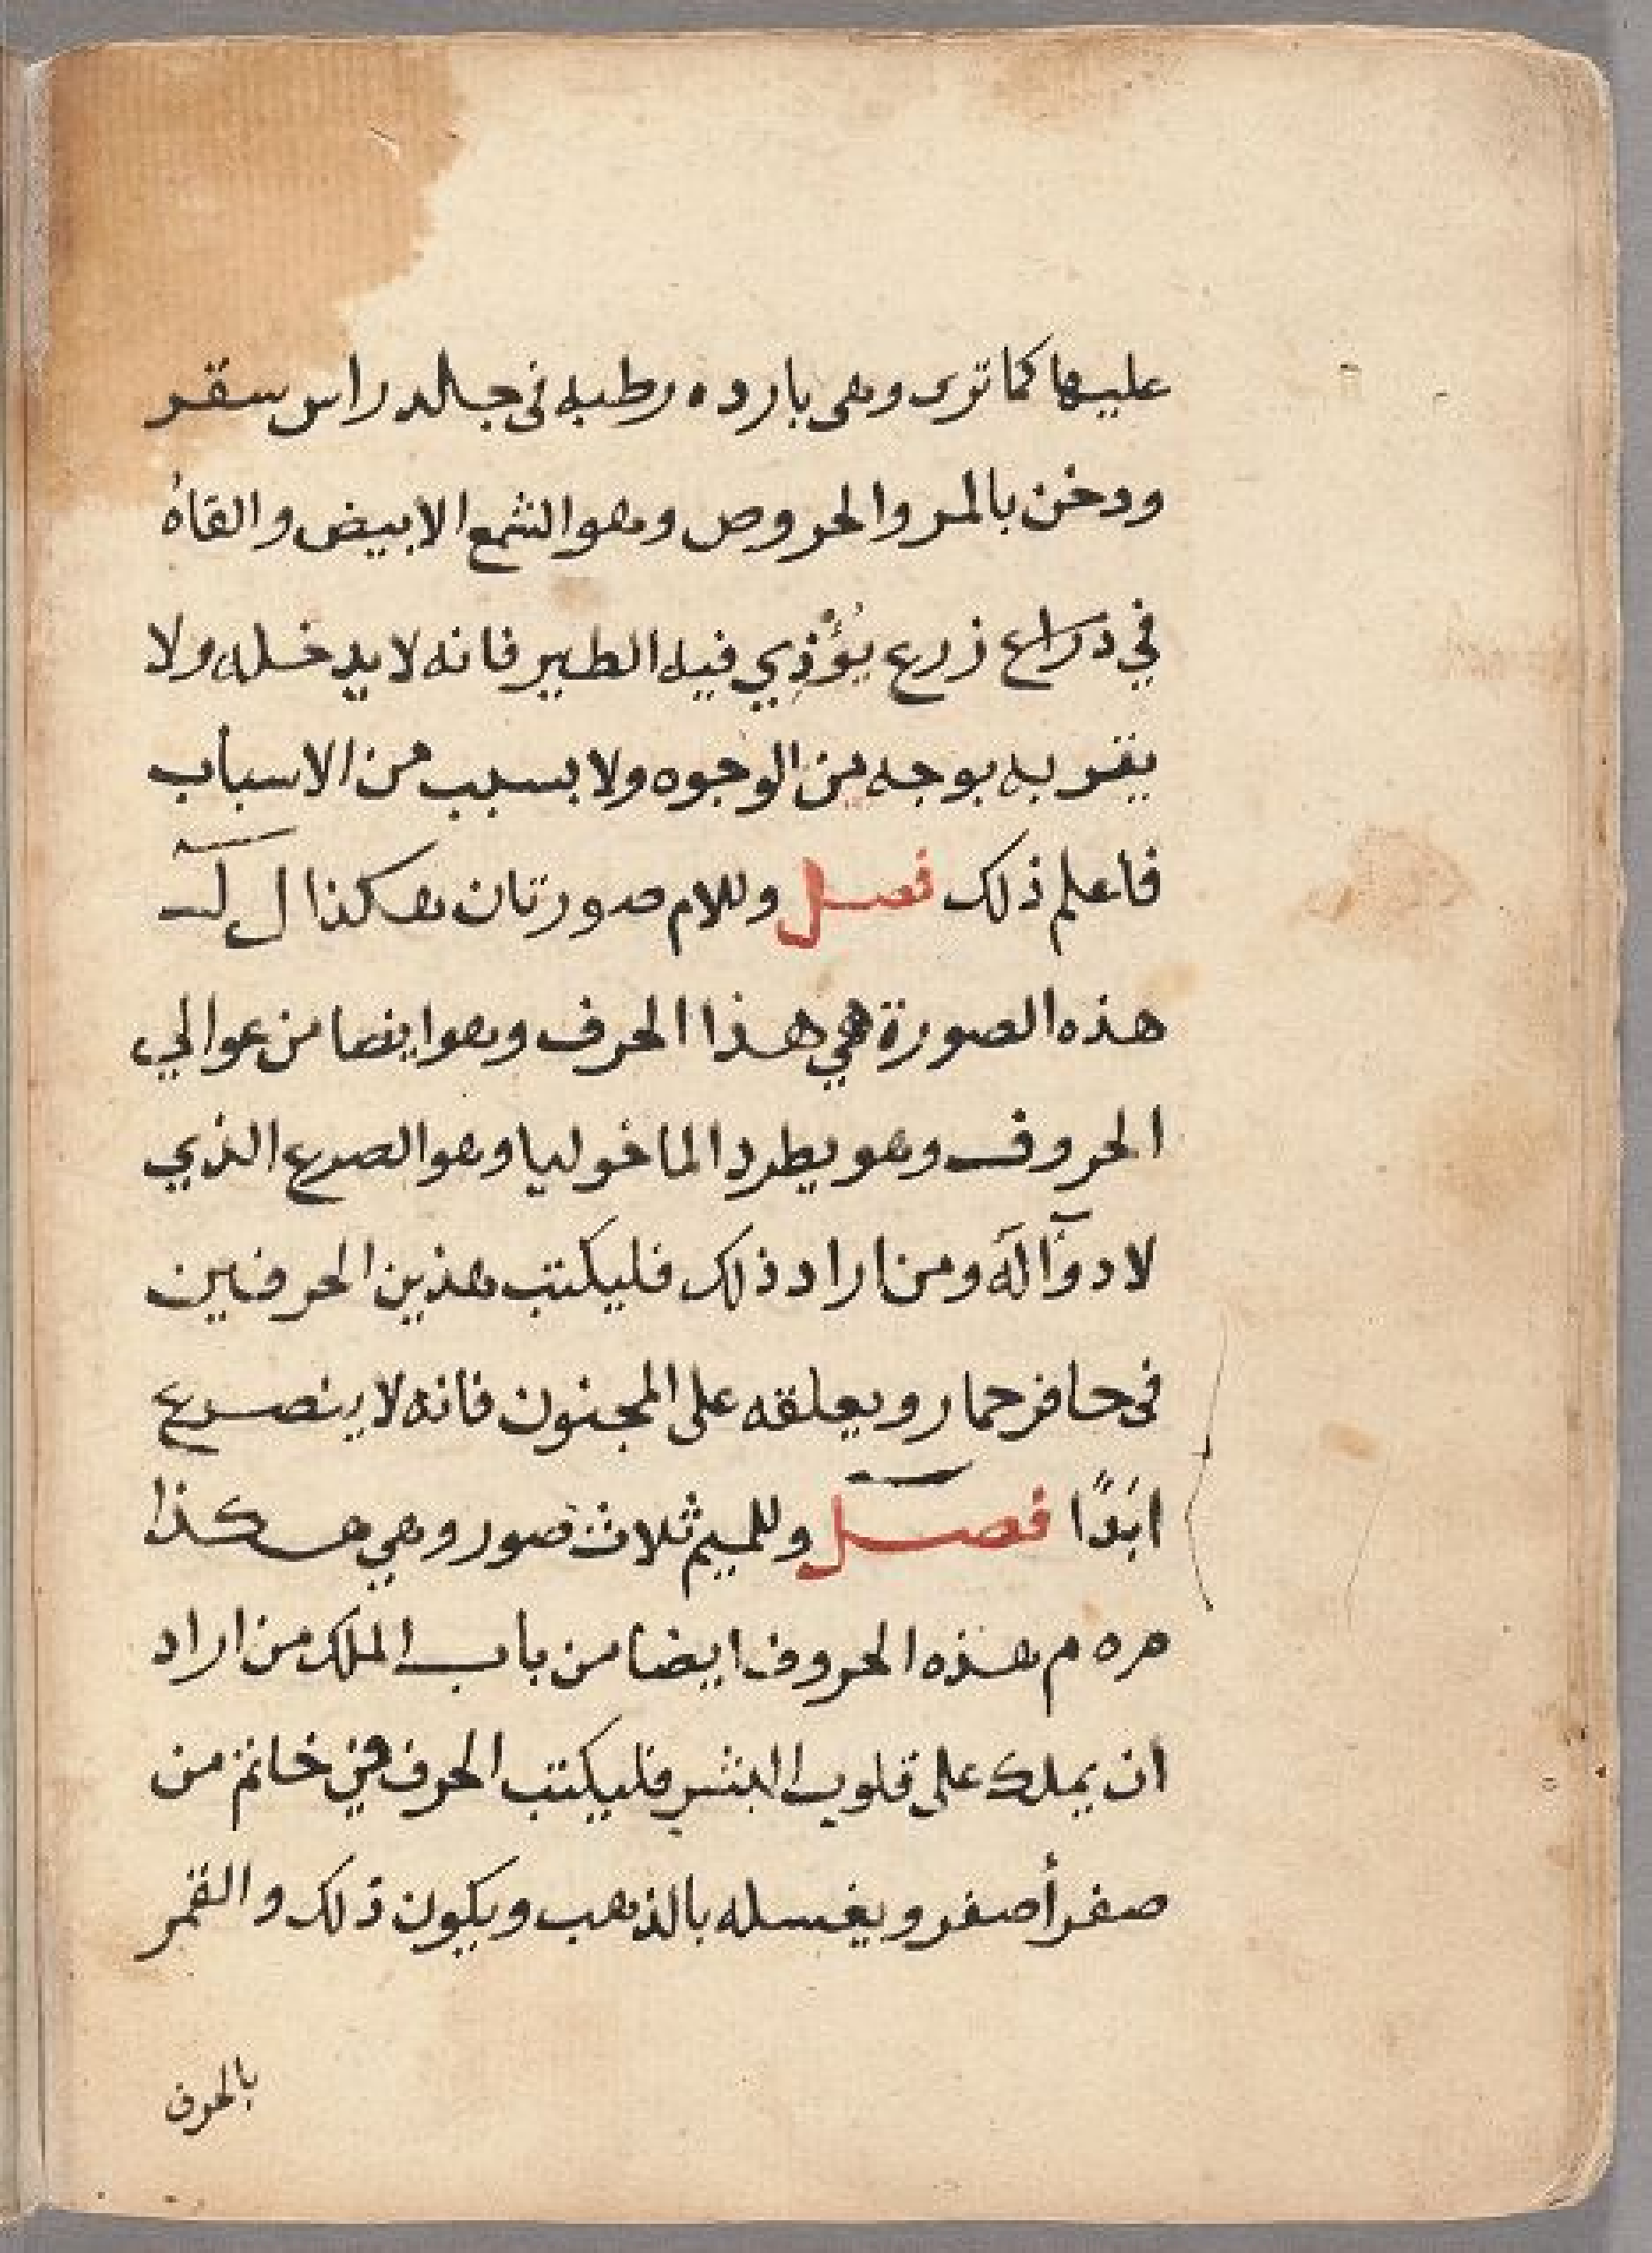 عليها كما ترى وهى بارده رطبه فى جلد راس سقر
ودخن بالمر والحروص وهو الشمع الابيض والقاهُ
في ذراع زرع يُؤْذِي فيه الطير فانه لا يدخله ولا
يقربه بوجه من الوجوه ولا بسبب من الاسباب
فاعلم ذلك فصل وللام صورتان هكذا ل لـ
هذه الصورة هي هذا الحرف وهو ايضا من عوالي
الحروف وهو يطرد الماخوليا وهو الصرع الذي
لا دوآ الَهَ ومن اراد ذلك فليكتب هذين الحرفين
فى حافر حمار ويعلقه على المجنون فانه لا ينصرع
ابَدًا فصل وللميم ثلاث صور وهي هكذا
مره م هذه الحروف ايضا من باب الملك من اراد
ان يملك على قلوب البشر فليكتب الحرف في خاتم من
صفر أصفر ويغسله بالذهب ويكون ذلك والقمر
بالحرف